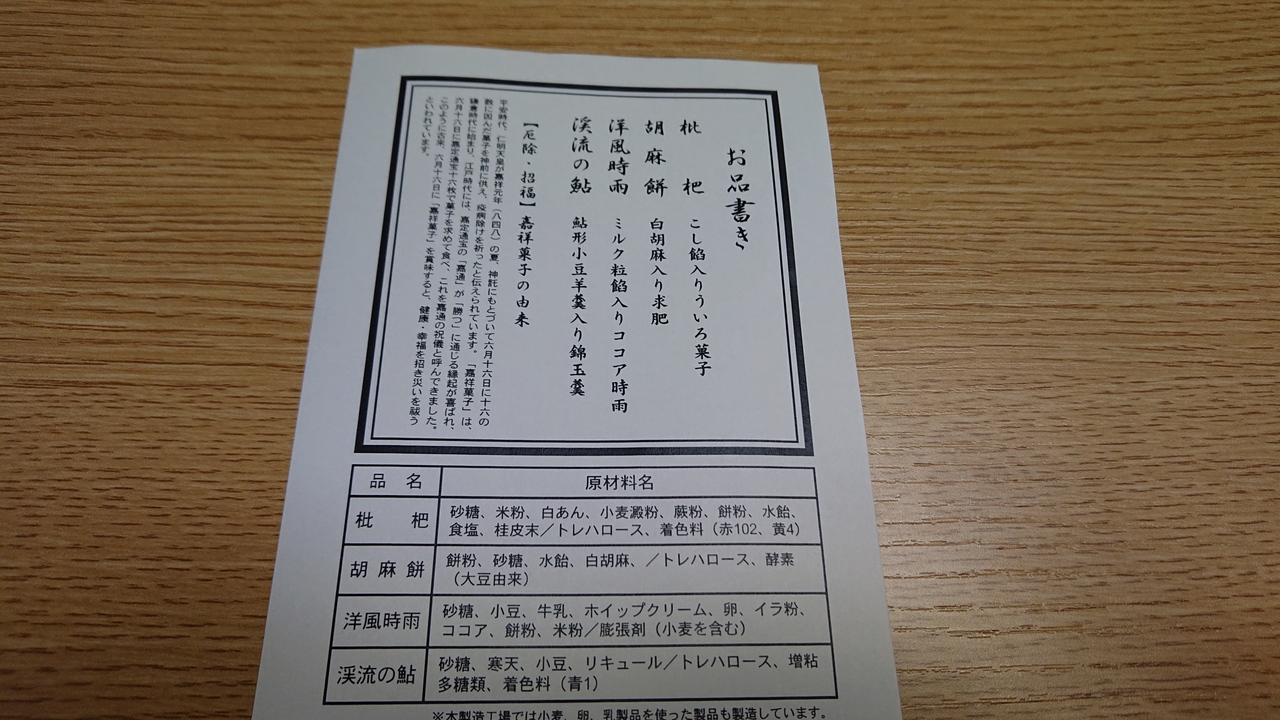 お品書き
枇杷 こし餡入りういろ菓子
胡麻餅 白胡麻入り求肥
洋風時雨 ミルク粒餡入りココア時雨
渓流の鮎 鮎形小豆羊羹入り錦玉羹
【厄除・招福】嘉祥菓子の由来
平安時代、仁明天皇が嘉祥元年（八四八）の夏、神託にもとづいて六月十六日に十六の
数に因んだ菓子を神前に供え、疫病除けを祈ったと伝えられています。「嘉祥菓子」は、
鎌倉時代に始まり、江戸時代には、嘉定通宝の「嘉通」が「勝つ」に通じる縁起が喜ばれ、
六月十六日に嘉定通宝十六枚で菓子を求めて食べ、これを嘉通の祝儀と呼んできました。
このように古来、六月十六日に「嘉祥菓子」を賞味すると、健康・幸福を招き災いを祓う
といわれています。
品名 原材料名
枇杷 砂糖、米粉、白あん、小麦澱粉、蕨粉、餅粉、水飴、
食塩、桂皮末／トレハロース、着色料（赤102、黄4）
胡麻餅 餅粉、砂糖、水飴、白胡麻、／トレハロース、酵素
（大豆由来）
洋風時雨 砂糖、小豆、牛乳、ホイップクリーム、卵、イラ粉、
ココア、餅粉、米粉／膨張剤（小麦を含む）
渓流の鮎 砂糖、寒天、小豆、リキュール／トレハロース、増粘
多糖類、着色料（青1）
※本製造工場では小麦、卵、乳製品を使った製品も製造しています。